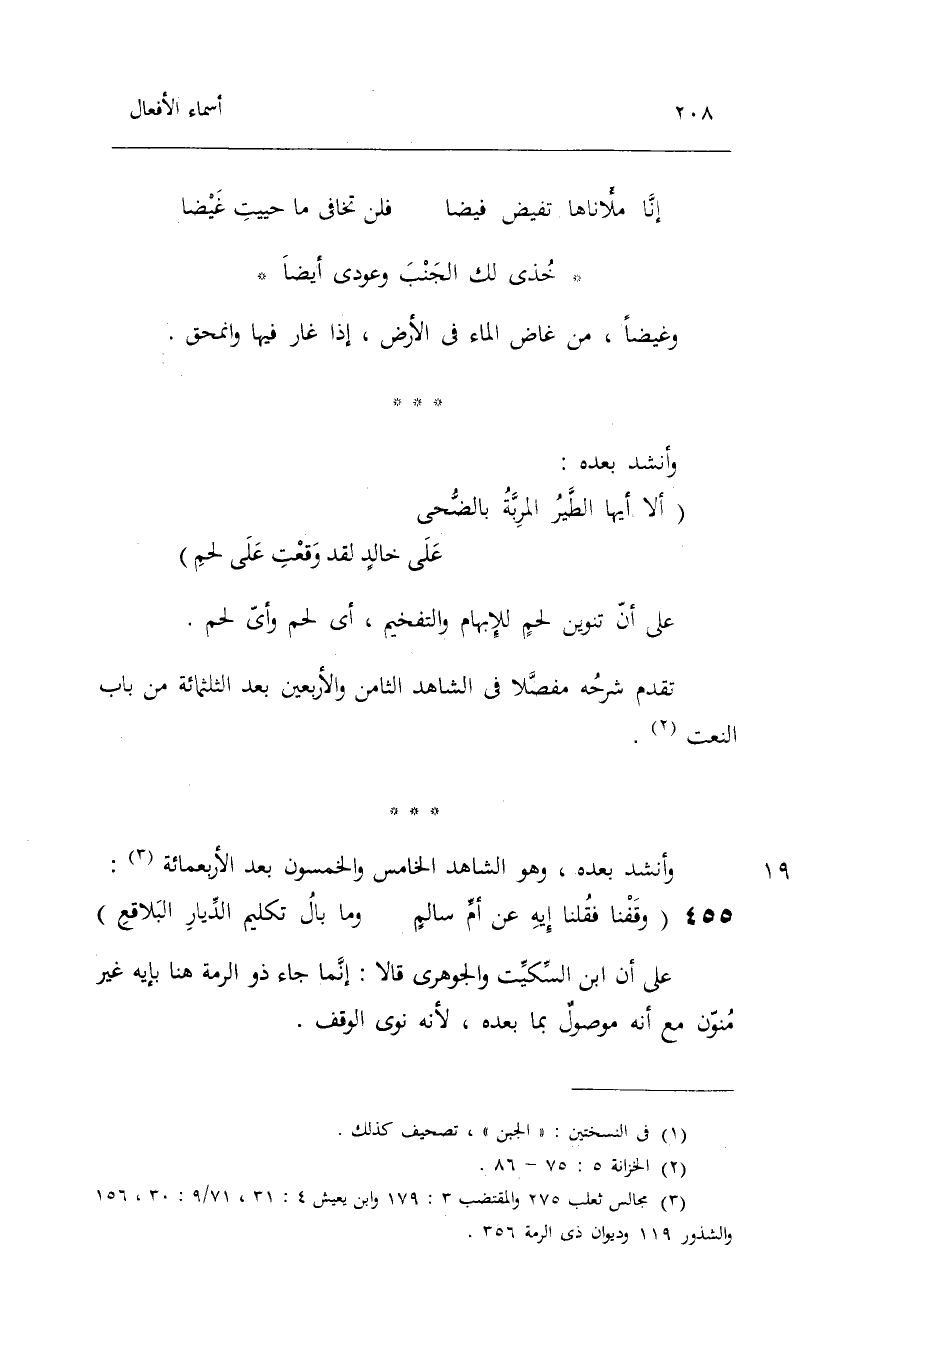 ٢٠٨ أسماء الأفعال
إنَّا ملْأناها تفيض فيضا فلن تخافى ما حييتِ غَيْضا
* خُذى لك الجَنْبَ وعودى أيضاَ *
وغيضاً ، من غاض الماء فى الأرض ، إذا غار فيها وانمحق .
* * *
وأنشد بعده :
( ألا أيها الطَّيرُ المرِبَّةُ بالضُّحى
عَلَى خالدٍ لقد وَقعْتِ عَلَى لحمِ )
على أنّ تنوين لحمٍ للإبهام والتفخيم ، أى لحم وأىّ لحم .
تقدم شرحُه مفصَّلا فى الشاهد الثامن والأربعين بعد الثلثمائة من باب
النعت (٢) .
* * *
وأنشد بعده ، وهو الشاهد الخامس والخمسون بعد الأربعمائة (٣) : ١٩
٤٥٥ ( وقَفْنا فقُلنا إيهِ عن أمِّ سالمٍ وما بالُ تكليم الدِّيارِ البَلاقعِ )
على أن ابن السِّكيِّت والجوهرى قالا : إنَّما جاء ذو الرمة هنا بإيه غير
مُنوّن مع أنه موصولٌ بما بعده ، لأنه نوى الوقف .
(١) فى النسختين : « الجبن » ، تصحيف كذلك .
(٢) الخزانة ٥ : ٧٥ – ٨٦ .
(٣) مجالس ثعلب ٢٧٥ والمقتضب ٣ : ١٧٩ وابن يعيش ٤ : ٣١ ، ٩/٧١ : ٣٠ ، ١٥٦
والشذور ١١٩ وديوان ذى الرمة ٣٥٦ .